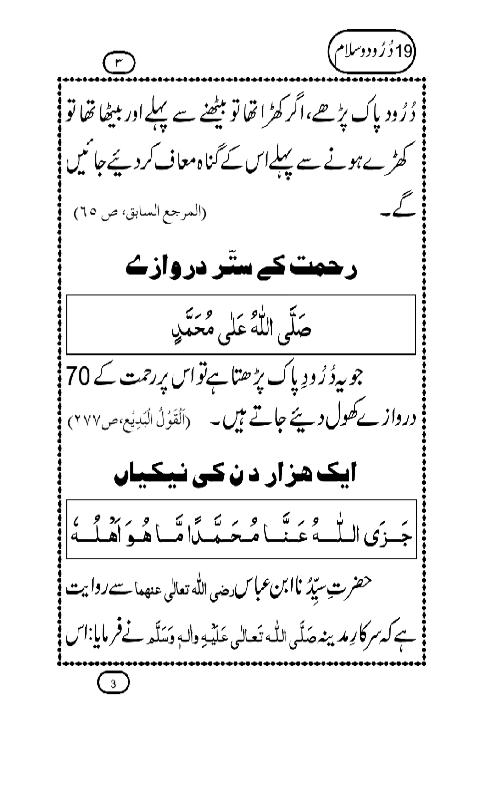 19 دُرُود و سلام
۳
دُرُود پاک پڑھے، اگر کھڑا تھا تو بیٹھنے سے پہلے اور بیٹھا تھا تو
کھڑے ہونے سے پہلے اس کے گناہ معاف کر دئیے جائیں
گے۔ (المرجع السابق، ص ٦٥)
رحمت کے ستّر دروازے
صَلَّی اللہُ عَلٰی مُحَمَّدٍ
جو یہ دُرُودِ پاک پڑھتا ہے تو اس پر رحمت کے 70
دروازے کھول دیئے جاتے ہیں۔ (اَلْقَوْلُ الْبَدِیْع، ص۲۷۷)
ایک ہزار دن کی نیکیاں
جَزَی اللّٰہُ عَنَّا مُحَمَّدًا مَّا ھُوَ اَھْلُہٗ
حضرتِ سیِّدُنا ابن عباس رضی اللہ تعالٰی عنھما سے روایت
ہے کہ سرکارِ مدینہ صَلَّی اللہ تَعَالٰی عَلَیْہِ واٰلہٖ وَسَلَّم نے فرمایا: اس
3